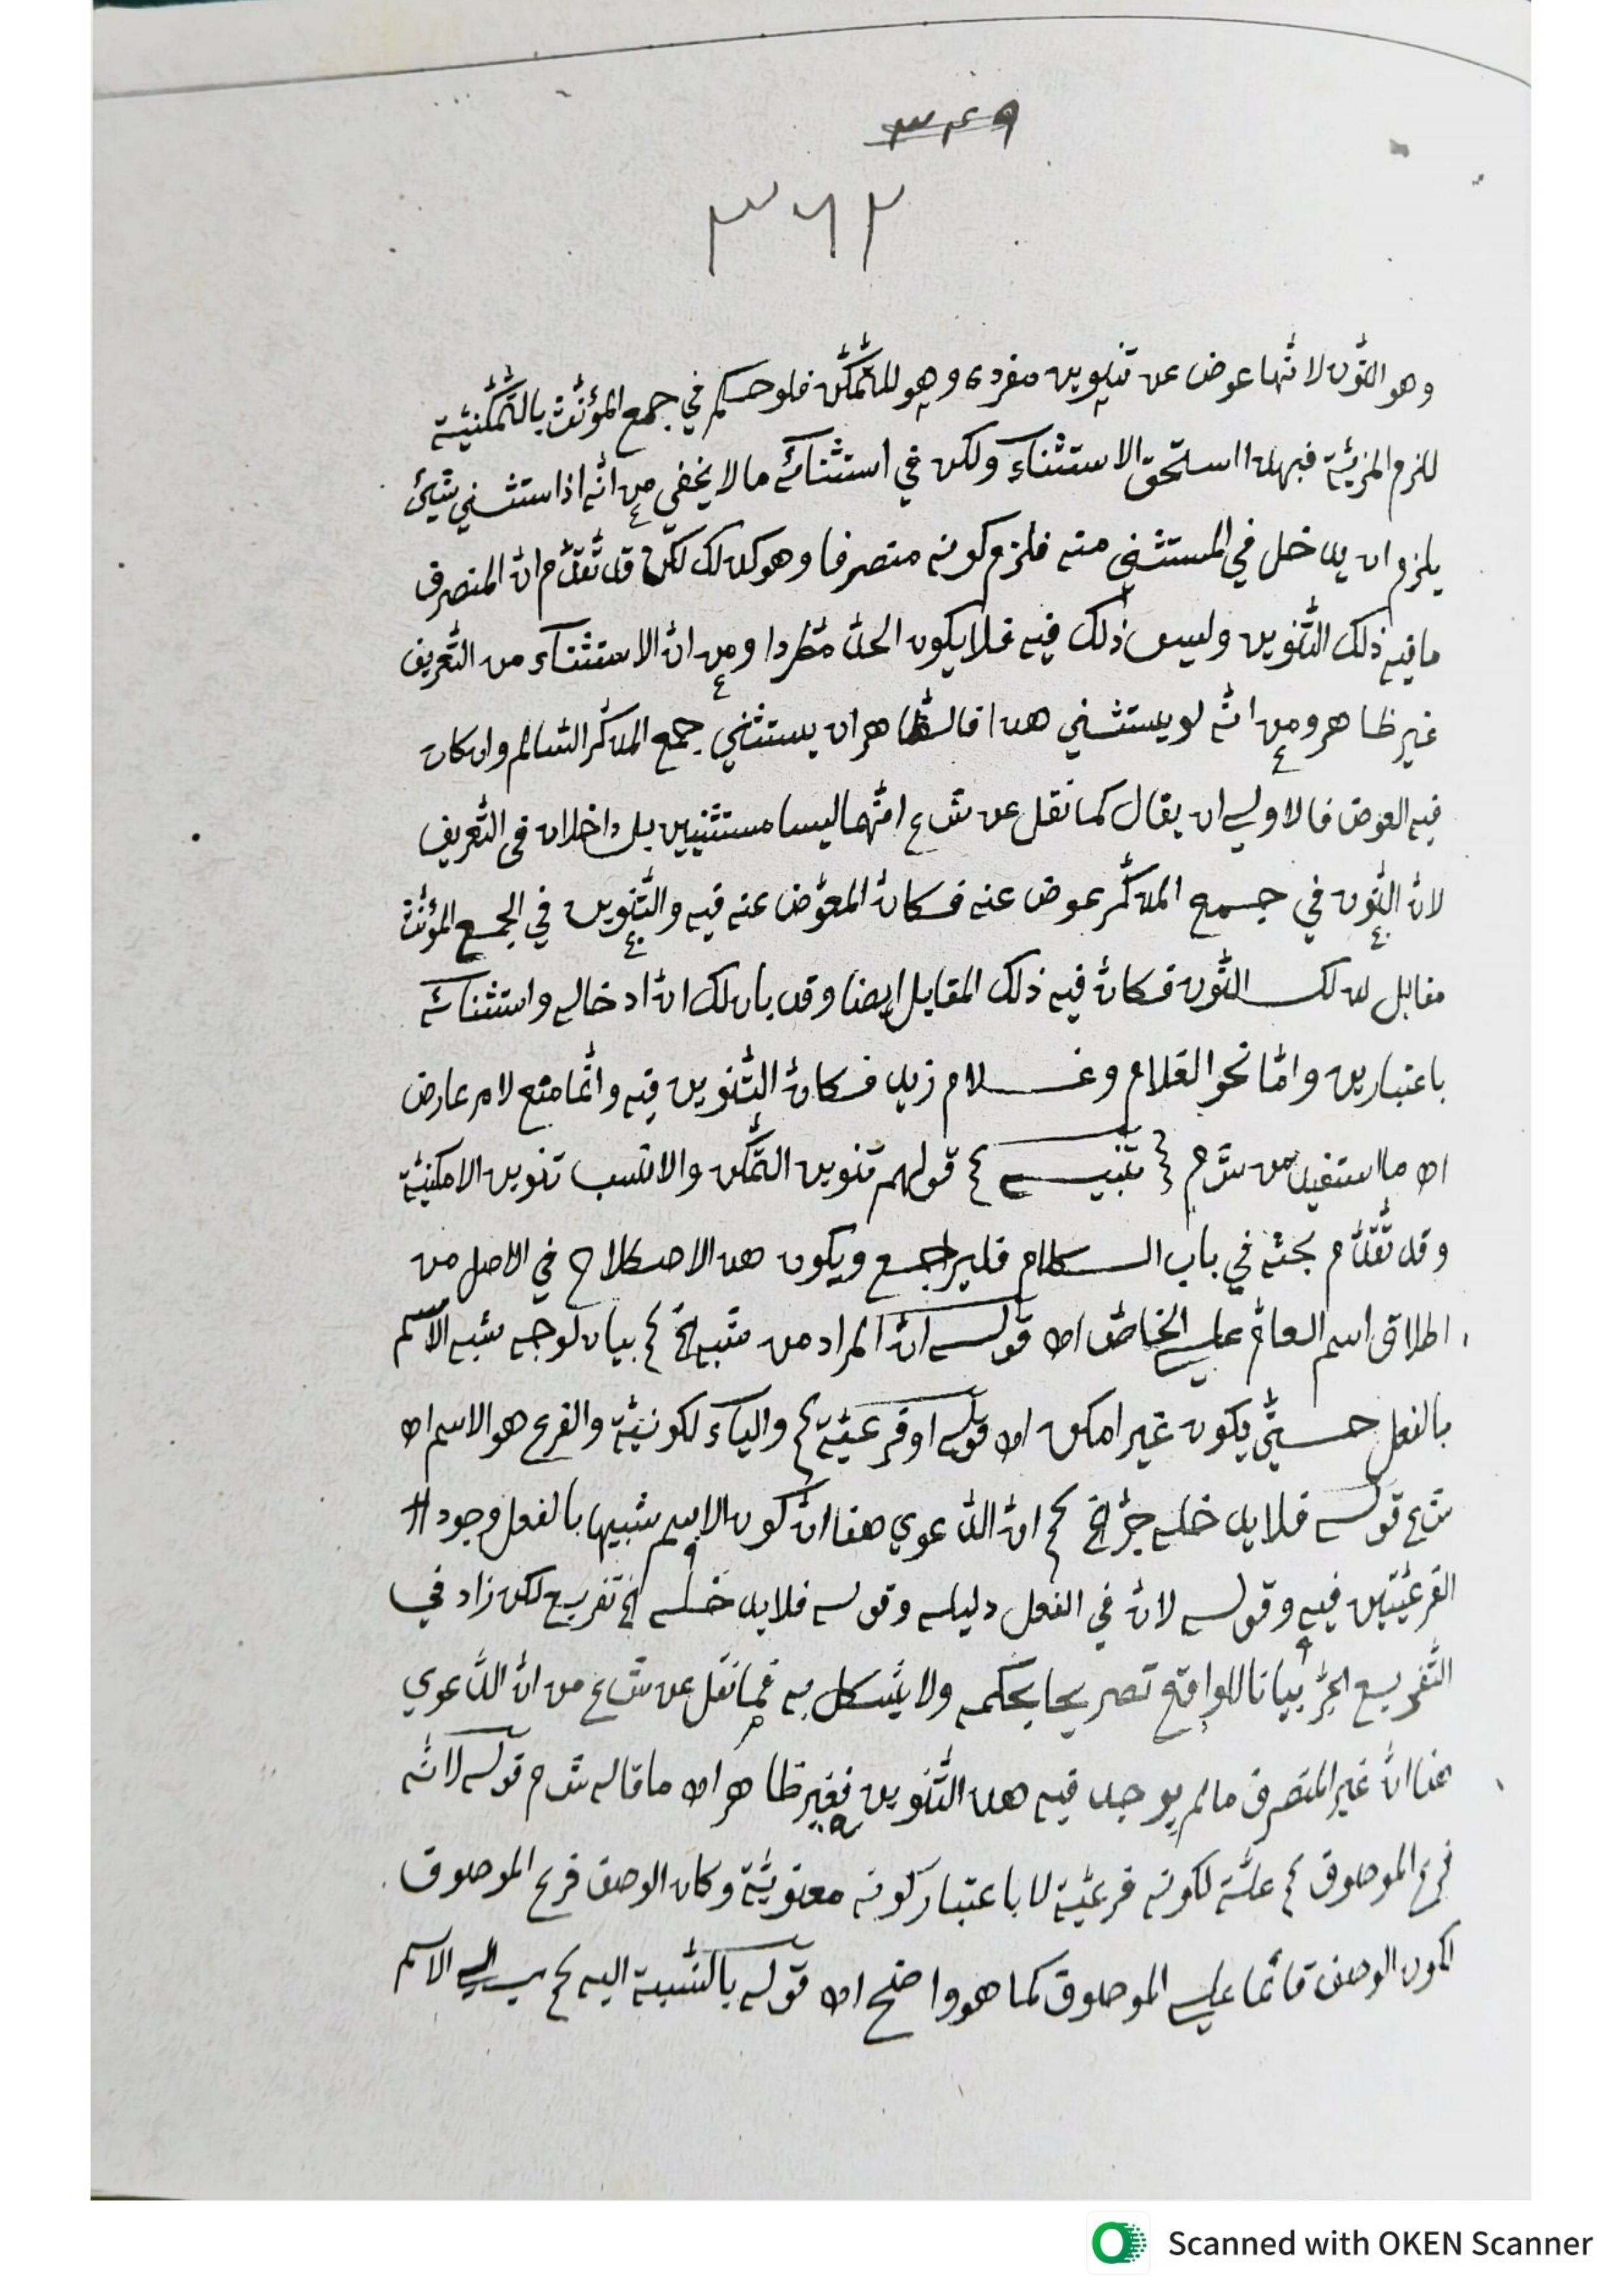 ٣٤٩
٣٦٢
وهو النّون لانّها عوض عن تنوين مفرده وهو للتّمكّن فلو حكم في جمع المؤنّث بالتّمكّنيّة
للزم المزيّة فبهذا استحقّ الاستثناء ولكن في استثنائه ما لا يخفي من انّه اذا استثني شيئ
يلزم ان يدخل في المستثني منه فلزم كونه منصرفا وهو كذلك لكن قد تقدّم انّ المنصرف
ما فيه ذلك التّنوين وليس ذلك فيه فلا يكون الحدّ مطّردا ومن انّ الاستثناء من التّعريف
غير ظاهر ومن انّه لو يستثني هذا فالظّاهر ان يستثني جمع المذكّر السّالم وان كان
فيه العوض فالاولي ان يقال كما نقل عن شع انّهما ليسا مستثنيين بل داخلان في التّعريف
لانّ النّون في جمع المذكّر عوض عنه فكانّ المعوّض عنه فيه والتّنوين في الجمع المؤنّث
مقابل لذلك النّون فكانّ فيه ذلك المقابل ايضا وقد بان لك انّ ادخاله واستثنائه
باعتبارين وامّا نحو الغلام وغلام زيد فكانّ التّنوين فيه وانّما منع لامر عارض
اه ما استفيد من شرّم تنبيه قولهم تنوين التّمكّن والانسب تنوين الامكنيّة
وقد تقدّم بحثه في باب الكلام فليراجع ويكون هذا الاصطلاح في الاصل من
اطلاق اسم العامّ علي الخاصّ اه قوله انّ المراد من شبه الخ بيان لوجه شبه الاسم
بالفعل حتّي يكون غير امكن اه قوله او فرعيّة والياء لكونيّة والفرع هو الاسم اه
شع قوله فلا يدخله جرّ الخ انّ الدّعوي هنا انّ كون الاسم شبيها بالفعل وجود
الفرعيّتين فيه وقوله لانّ في الفعل دليله وقوله فلا يدخله الخ تفريع لكن زاد في
التّفريع الجرّ بيانا للواقع تصريحا بحكمه ولا يشكل به فما نقل عن شع من انّ الدّعوي
هنا انّ غير المنصرف ما لم يوجد فيه هذا التّنوين فغير ظاهر اه ما قاله شم قوله لانّه
فرع الموصوف علّة لكونه فرعيّة لا باعتبار كونه معنويّة وكان الوصف فرع الموصوف
لكون الوصف قائما علي الموصوف كما هو واضح اه قوله بالنّسبة اليه الي الاسم
Scanned with OKEN Scanner